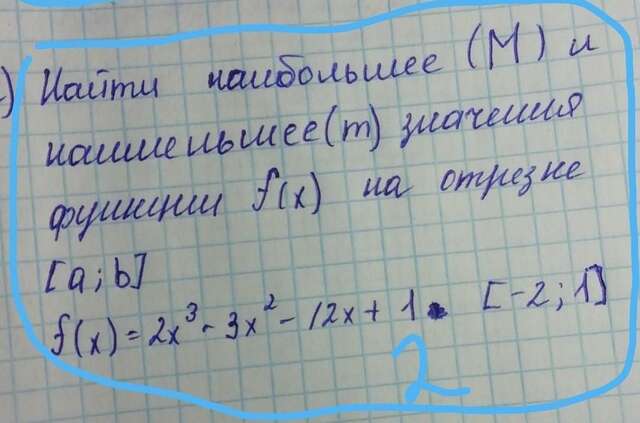 ) Найти наибольшее (М) и
наименьшее (m) значения
функции f(x) на отрезке
[a; b]
f(x) = 2x³ - 3x² - 12x + 1. [-2; 1]
2